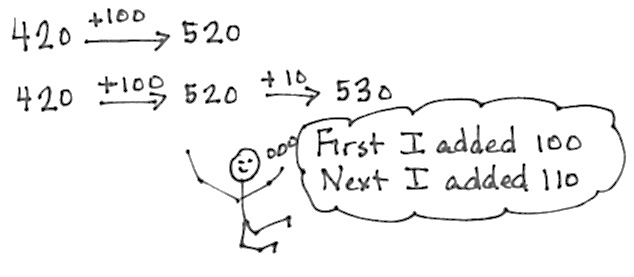 420 +100 520
420 +100 520 +10 530
First I added 100
Next I added 110